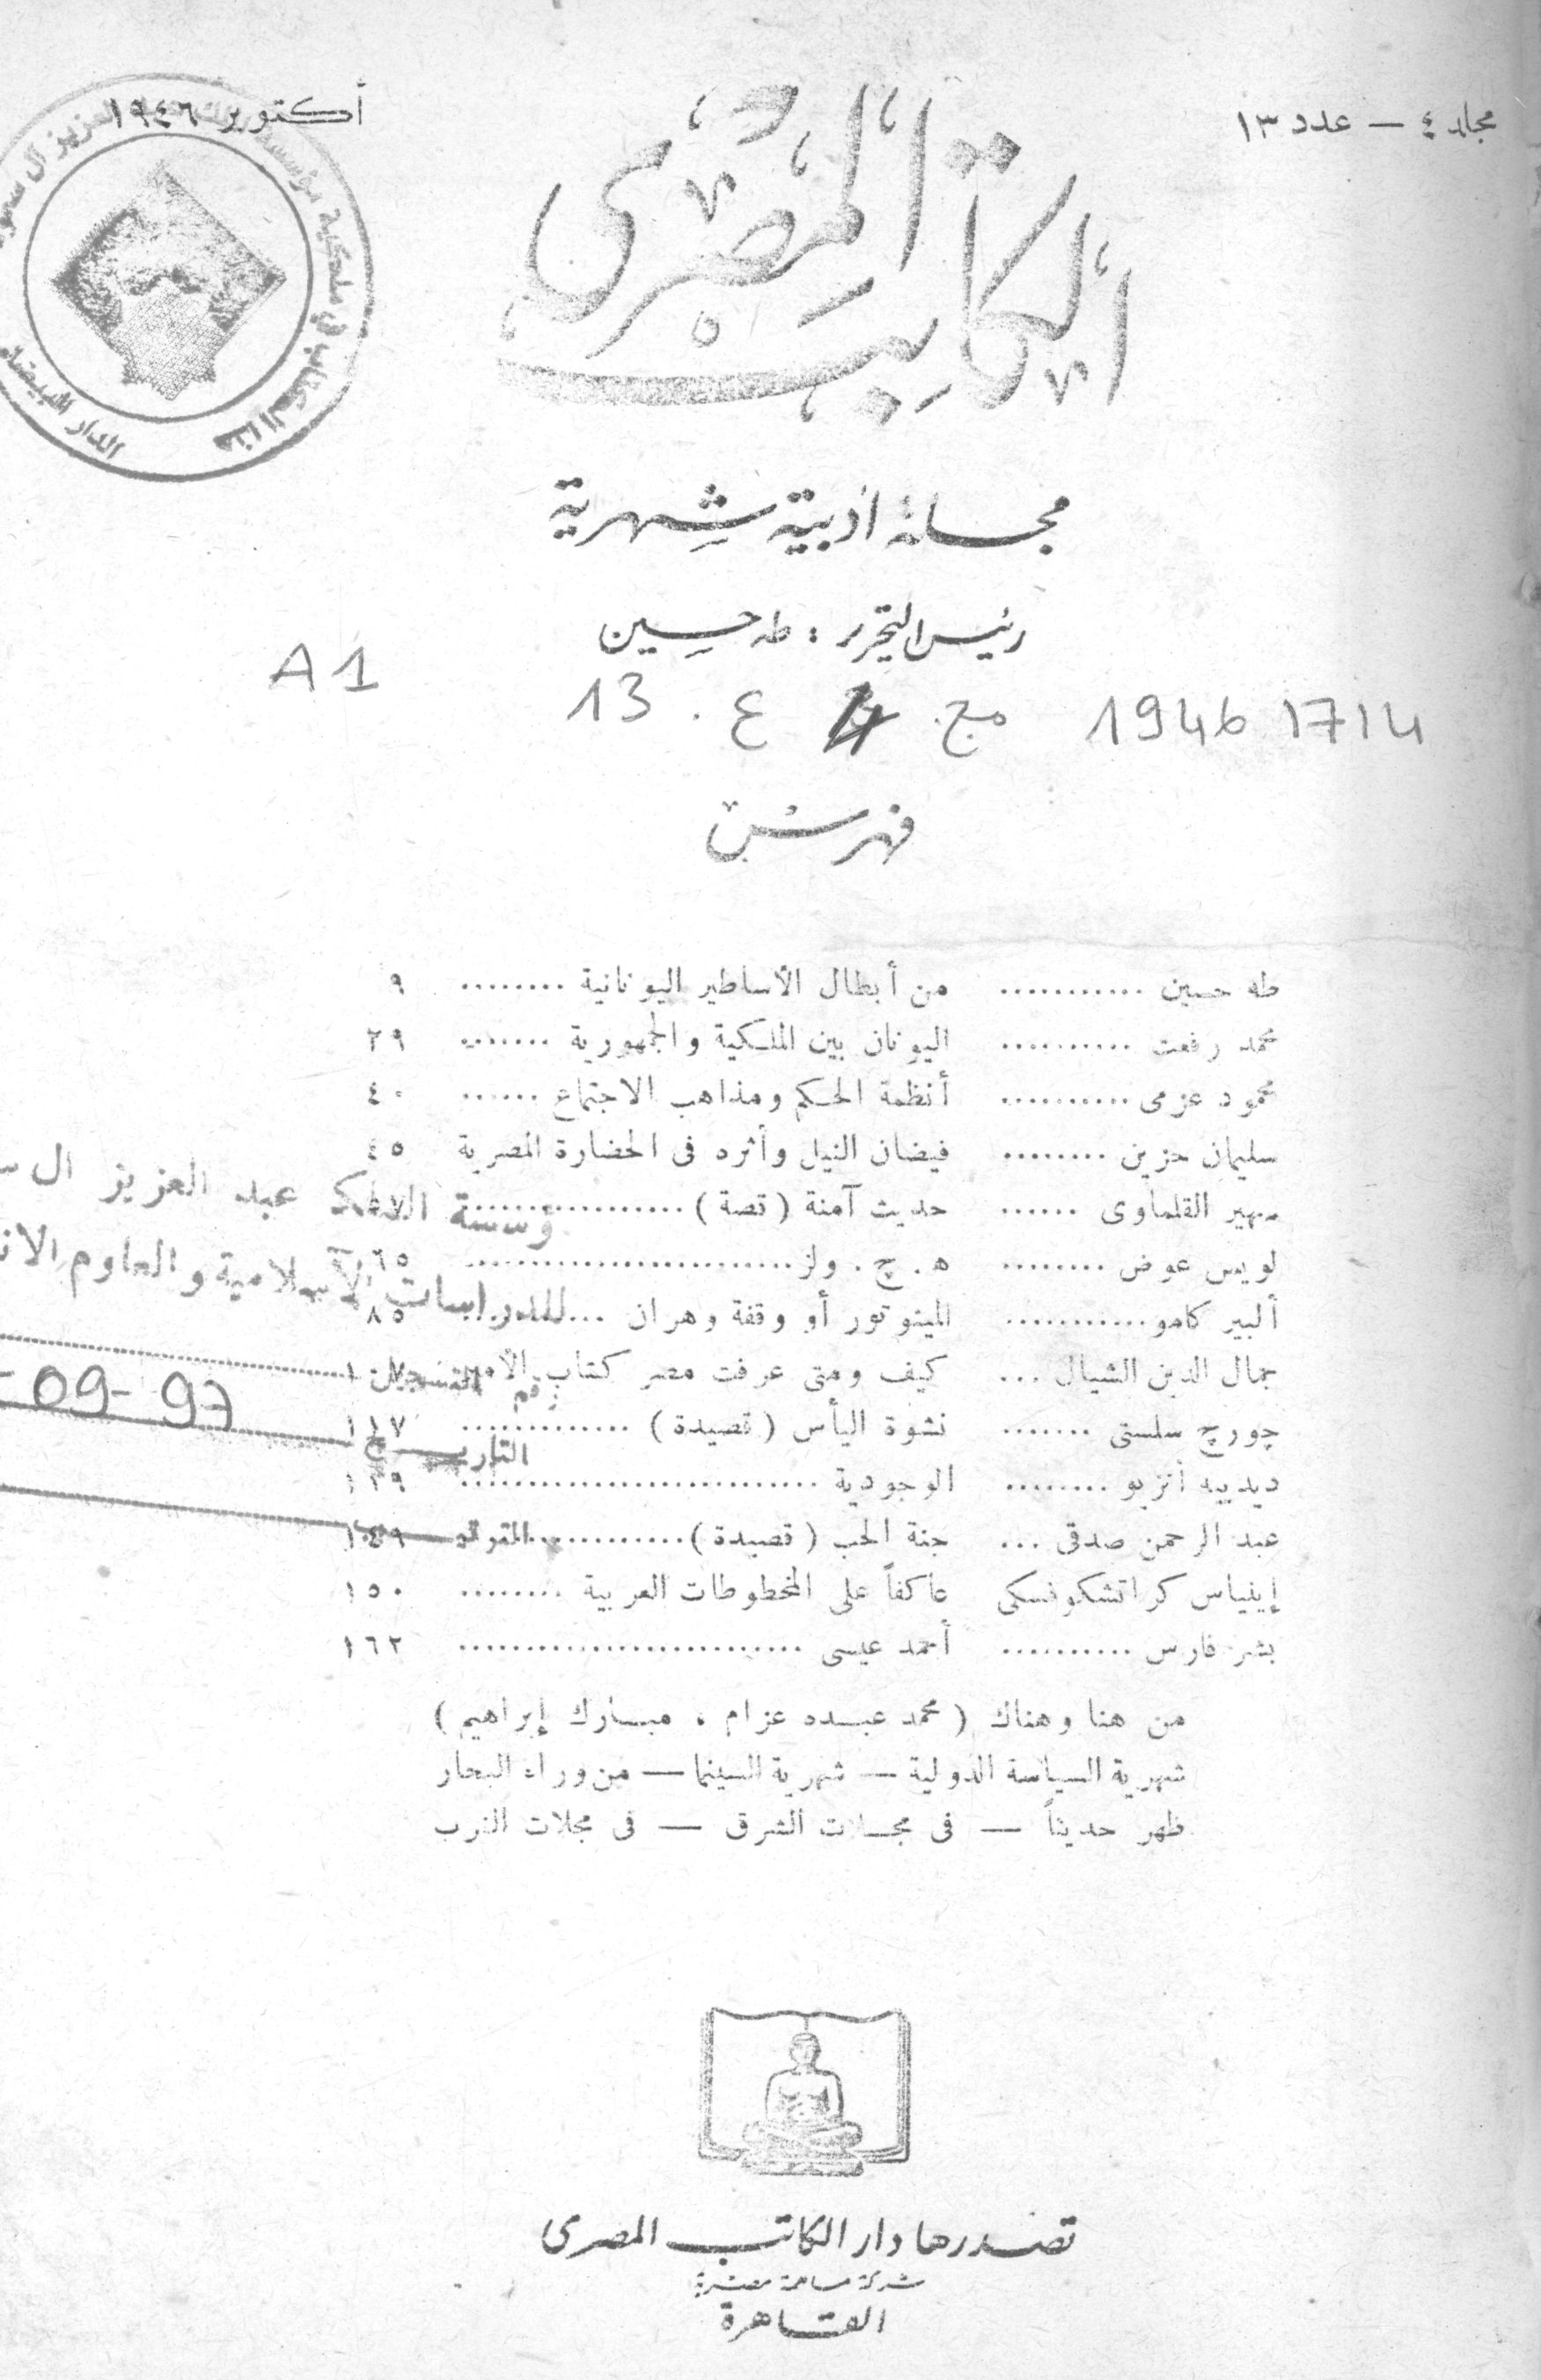 مجلد ٤ — عدد ١٣
أكتوبر ١٩٤٦
الكاتب المصرى
مجلة أدبية شهرية
رئيس التحرير : طه حسين
A1
1946 1714 مج. 4 ع. 13
فهرست
طه حسين ........... من أبطال الأساطير اليونانية ........ ٩
محمد رفعت .......... اليونان بين الملكية والجمهورية ....... ٢٩
محمود عزمى .......... أنظمة الحكم ومذاهب الاجتماع ...... ٤٠
سليمان حزين ........ فيضان النيل وأثره فى الحضارة المصرية ٤٥
سهير القلماوى ...... حديث آمنة (قصة) .................
لويس عوض ........ ه . ج . ولز ......................... ٦٥
ألبير كامو ........... المينوتور أو وقفة وهران ........... ٨٥
جمال الدين الشيال ... كيف ومتى عرفت مصر كتاب
چورچ سلستى ....... نشوة اليأس (قصيدة) ............. ١١٧
ديدييه أنزيو ........ الوجودية ........................... ١٢٩
عبد الرحمن صدقى ... جنة الحب (قصيدة) ................. ١٤٩
إينياس كراتشكوفسكى عاكفاً على المخطوطات العربية ........ ١٥٠
بشر فارس .......... أحمد عيسى .......................... ١٦٢
من هنا وهناك (محمد عبده عزام ، مبارك إبراهيم)
شهرية السياسة الدولية — شهرية السينما — من وراء البحار
ظهر حديثاً — فى مجلات الشرق — فى مجلات الغرب
هذا الكتاب في ملكية مؤسسة
العزيز آل سعود
الدار البيضاء
ؤسسة الملك عبد العزيز ال
للدراسات الاسلامية والعلوم الان
رقم التسجيل
09-97
التاريخ
تصدرها دار الكاتب المصرى
شركة مساهمة مصرية
القاهرة